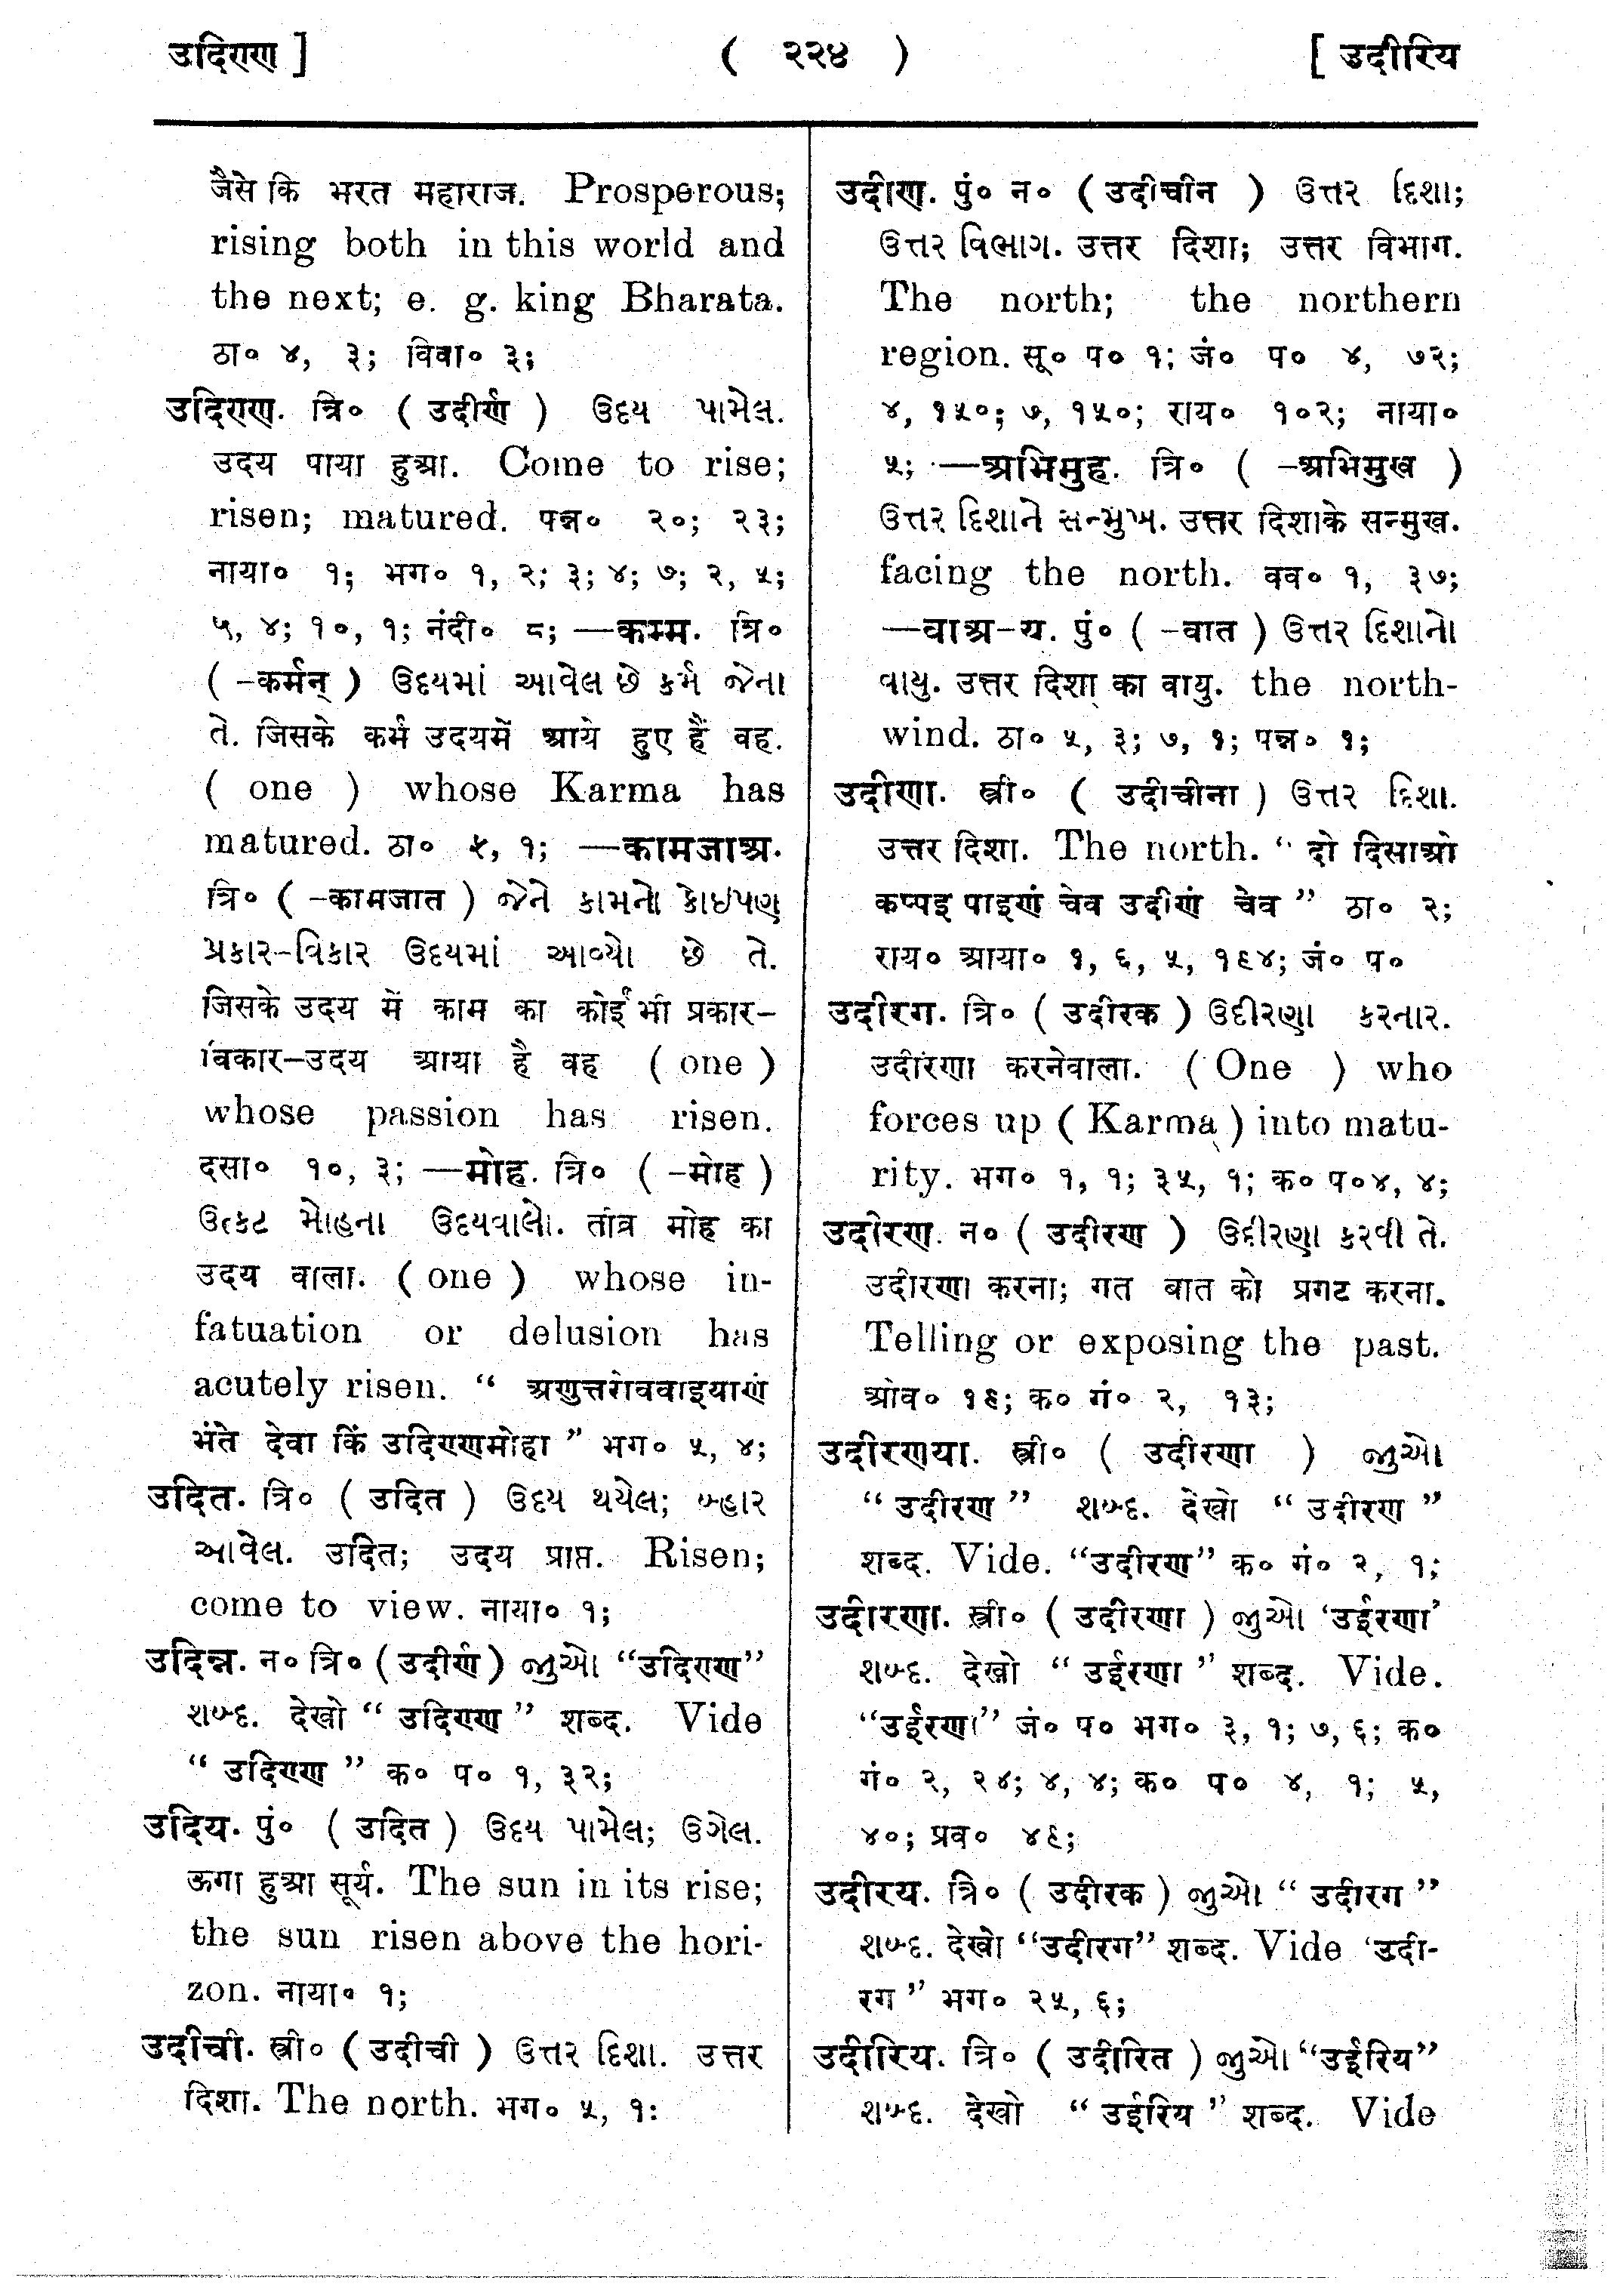 उदिण्ण ]
( २२४ )
[ उदीरिय
जैसे कि भरत महाराज. Prosperous;
rising both in this world and
the next; e. g. king Bharata.
ठा० ४, ३; विवा० ३;
उदिण्ण. त्रि० ( उदीर्ण ) ઉદય પામેલ.
उदय पाया हुआ. Come to rise;
risen; matured. पन्न० २०; २३;
नाया० १; भग० १, २; ३; ४; ७; २, ५;
५, ४; १०, १; नंदी० ८; —कम्म. त्रि०
( -कर्मन् ) ઉદયમાં આવેલ છે કર્મ જેના
તે. जिसके कर्म उदयमें आये हुए हैं वह.
( one ) whose Karma has
matured. ठा० ५, १; —कामजाअ.
त्रि० ( -कामजात ) જેને કામનો કોઇપણ
પ્રકાર-વિકાર ઉદયમાં આવ્યો છે તે.
जिसके उदय में काम का कोई भी प्रकार-
विकार-उदय आया है वह ( one )
whose passion has risen.
दसा० १०, ३; —मोह. त्रि० ( -मोह )
ઉત્કટ મોહના ઉદયવાલો. तीव्र मोह का
उदय वाला. ( one ) whose in-
fatuation or delusion has
acutely risen. “ अणुत्तरोववाइयाणं
भंते देवा किं उदिण्णमोहा ” भग० ५, ४;
उदित. त्रि० ( उदित ) ઉદય થયેલ; બ્હાર
આવેલ. उदित; उदय प्राप्त. Risen;
come to view. नाया० १;
उदिन्न. न० त्रि० ( उदीर्ण ) જુઓ “उदिण्ण”
શબ્દ. देखो “ उदिण्ण ” शब्द. Vide
“ उदिण्ण ” क० प० १, ३२;
उदिय. पुं० ( उदित ) ઉદય પામેલ; ઉગેલ.
ऊगा हुआ सूर्य. The sun in its rise;
the sun risen above the hori-
zon. नाया० १;
उदीची. स्त्री० ( उदीची ) ઉત્તર દિશા. उत्तर
दिशा. The north. भग० ५, १:
उदीण. पुं० न० ( उदीचीन ) ઉત્તર દિશા;
ઉત્તર વિભાગ. उत्तर दिशा; उत्तर विभाग.
The north; the northern
region. सू० प० १; जं० प० ४, ७२;
४, १५०; ७, १५०; राय० १०२; नाया०
५; —अभिमुह. त्रि० ( -अभिमुख )
ઉત્તર દિશાને સન્મુખ. उत्तर दिशाके सन्मुख.
facing the north. वव० १, ३७;
—वाअ-य. पुं० ( -वात ) ઉત્તર દિશાનો
વાયુ. उत्तर दिशा का वायु. the north-
wind. ठा० ५, ३; ७, १; पन्न० १;
उदीणा. स्त्री० ( उदीचीना ) ઉત્તર દિશા.
उत्तर दिशा. The north. “ दो दिसाओ
कप्पइ पाइणं चेव उदीणं चेव ” ठा० २;
राय० आया० १, ६, ५, १९४; जं० प०
उदीरग. त्रि० ( उदीरक ) ઉદીરણા કરનાર.
उदीरणा करनेवाला. ( One ) who
forces up ( Karma ) into matu-
rity. भग० १, १; ३५, १; क० प० ४, ४;
उदीरण. न० ( उदीरण ) ઉદીરણા કરવી તે.
उदीरणा करना; गत बात को प्रगट करना.
Telling or exposing the past.
ओव० १९; क० गं० २, १३;
उदीरणया. स्त्री० ( उदीरणा ) જુઓ
“ उदीरण ” શબ્દ. देखो “ उदीरण ”
शब्द. Vide. “उदीरण” क० गं० २, १;
उदीरणा. स्त्री० ( उदीरणा ) જુઓ ‘उईरणा’
શબ્દ. देखो “ उईरणा ” शब्द. Vide.
“उईरणा” जं० प० भग० ३, १; ७, ६; क०
गं० २, २४; ४, ४; क० प० ४, १; ५,
४०; प्रव० ४९;
उदीरय. त्रि० ( उदीरक ) જુઓ “ उदीरग ”
શબ્દ. देखो “उदीरग” शब्द. Vide ‘उदी-
रग ” भग० २५, ६;
उदीरिय. त्रि० ( उदीरित ) જુઓ “उईरिय”
શબ્દ. देखो “ उईरिय ” शब्द. Vide